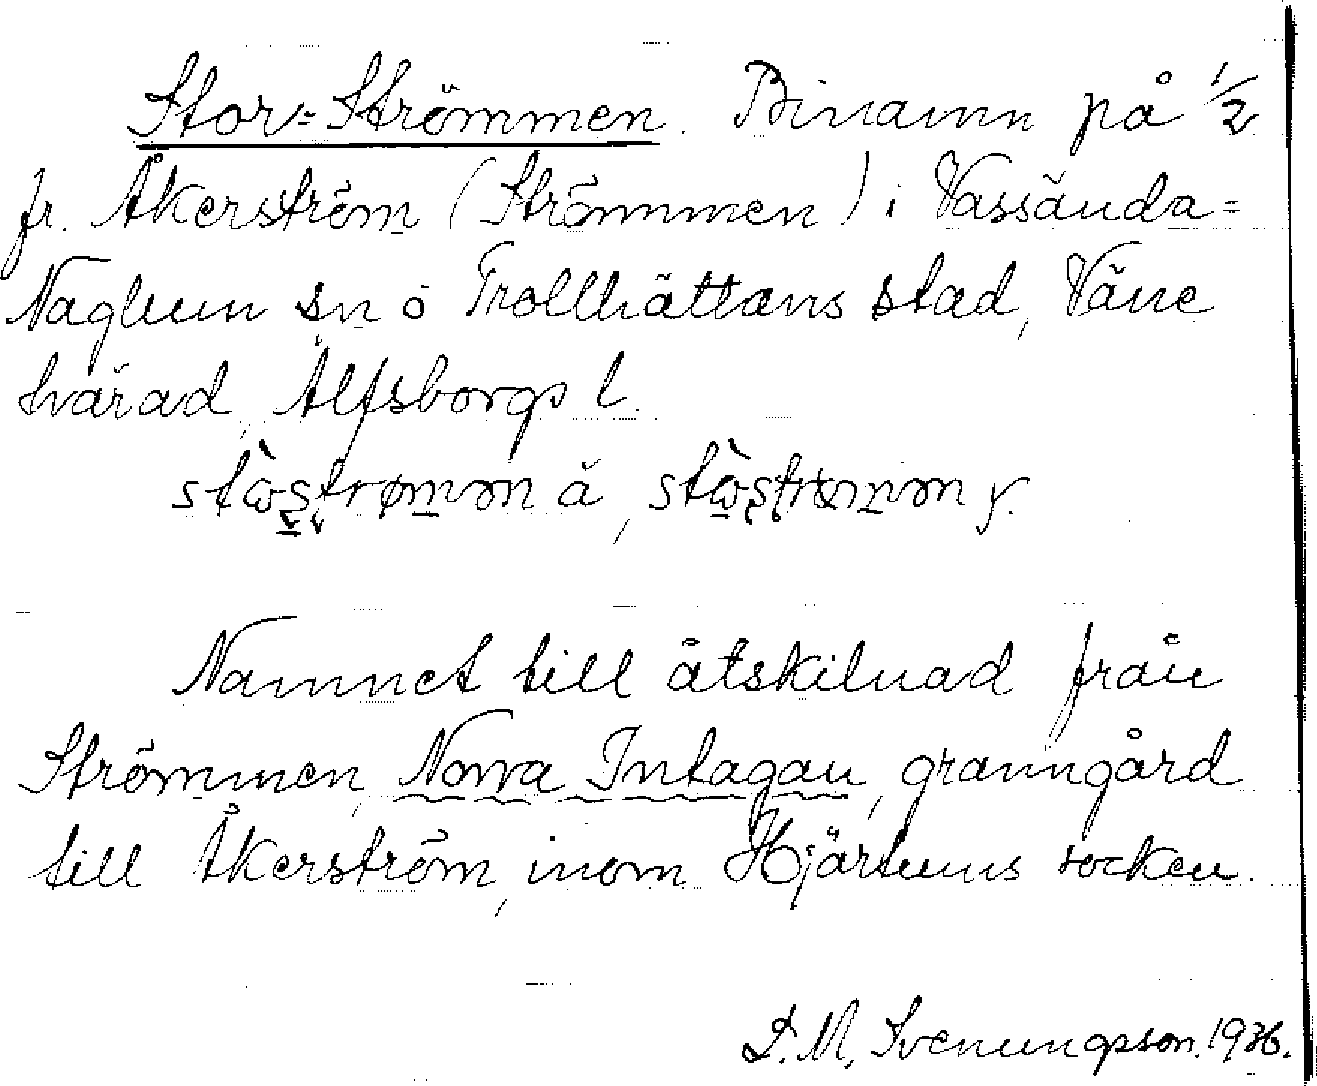 Stor=Strömmen. Binamn på 1/2
fr. Åkerström (Strömmen) i Vassända=
Naglum sn o Trollhättans stad, Väne
härad, Älfsborgs l.
Namnet till åtskilnad från
Strömmen, Norra Intagan, granngård
till Åkerström, inom Hjärtums socken.
D. M. Svenungsson. 1936.